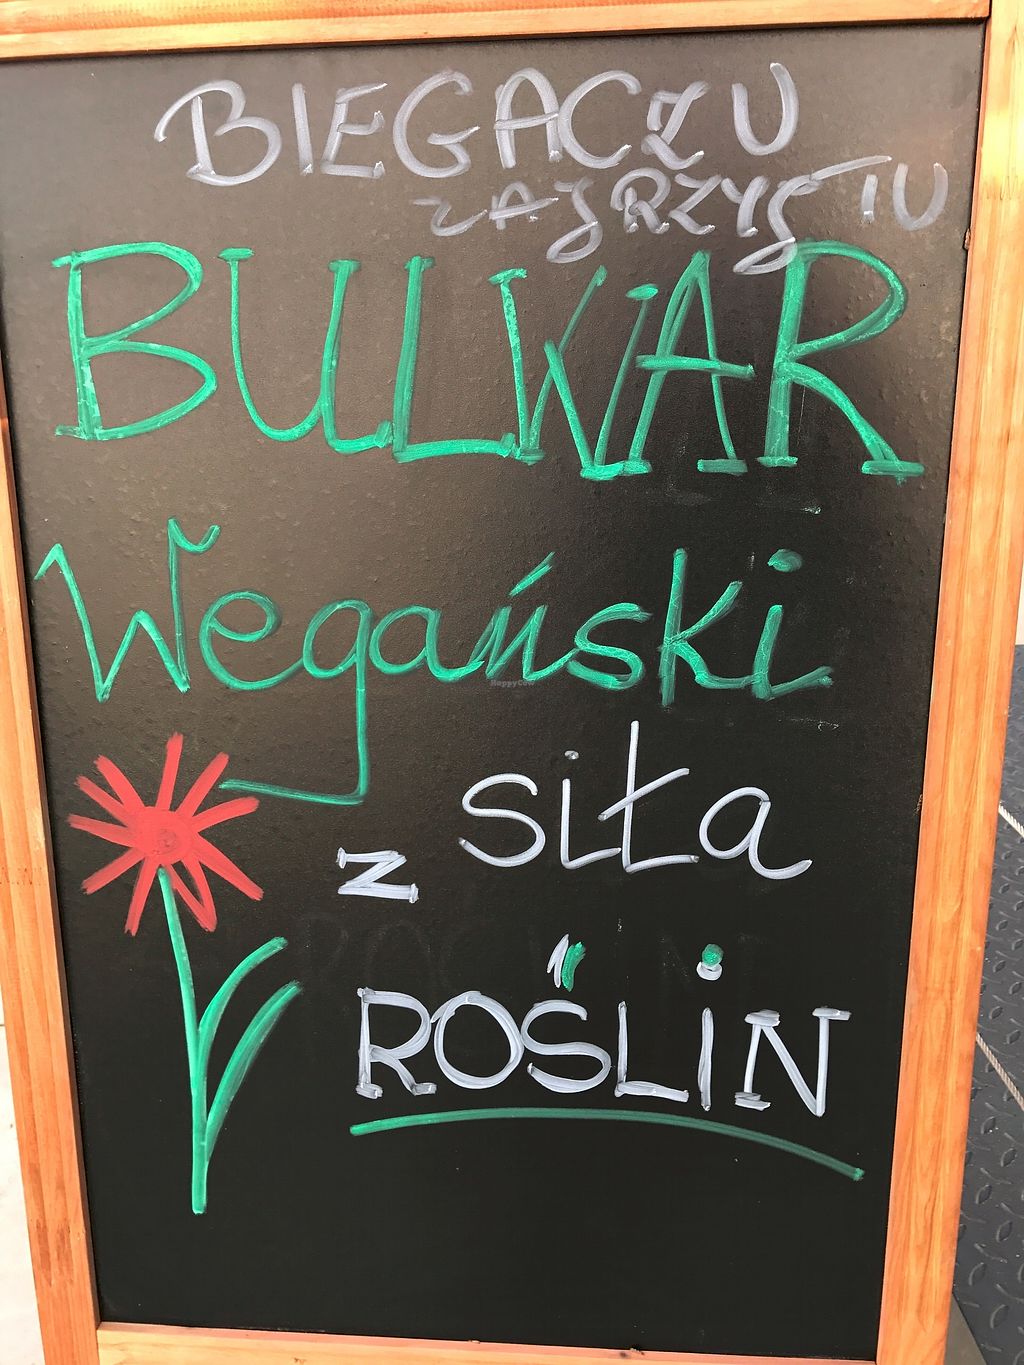 BIEGACZU
ZAJRZYJ TU
BULWAR
Wegański
HappyCow
z siła
ROŚLIN